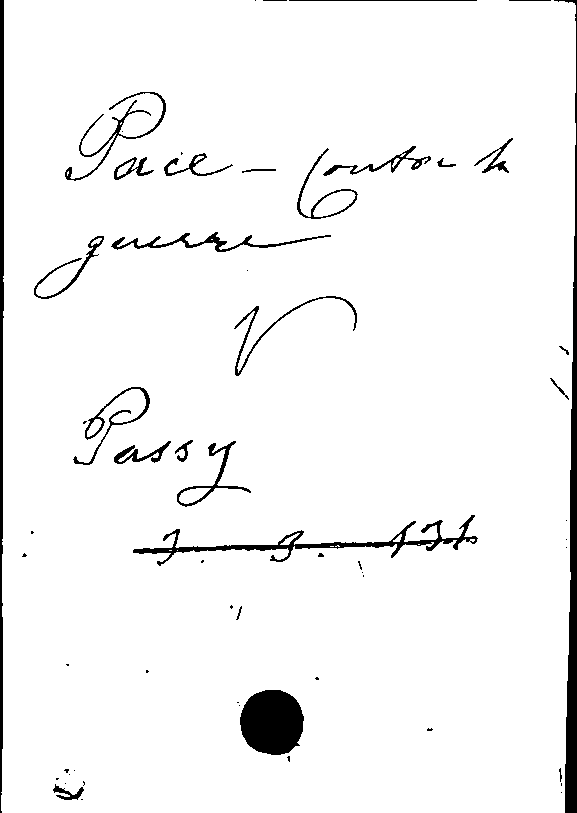 Pace - Contre la
guerre
V
Passy
3. 3. 131